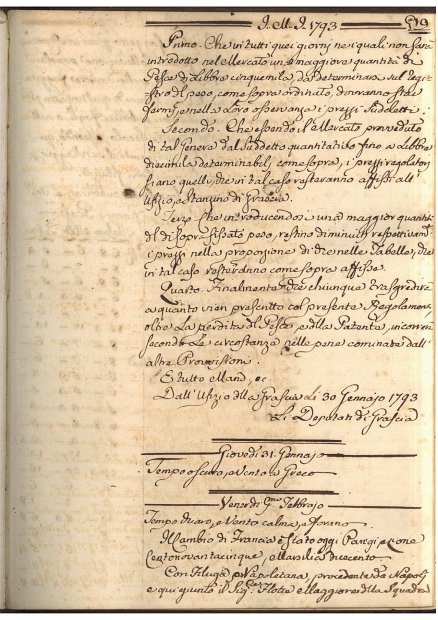 I. M. I. 1793 519
Primo. Che in tutti quei giorni nei quali non sarà
introdotto nel Mercato una maggiore quantità di
Pesce di Libbre cinquemila, da determinarsi sul Regi-
stro del peso, come sopra ordinato, dovranno star
fermi, e nella loro osservanza i prezzi suddetti.
Secondo. Che essendo il Mercato provveduto
di tal genere dal suddetto quantitativo fino a Libbre
diecimila determinabili come sopra, i prezzi regolatori
siano quelli, che in tal caso resteranno affissi all'
Uffizio, e Stanzino di Grascia.
Terzo. Che introducendosi una maggior quanti-
tà di sopra fissato peso, restino diminuiti respettivam.
i prezzi nella proporzione di che nelle Tabelle, che
in tal caso resteranno come sopra affisse.
Quarto. Finalmente che chiunque trasgredirà
a quanto vien prescritto col presente Regolamen.
oltre la perdita di Pesce, e della Patente, incorrerà
secondo le circostanze nelle pene cominate dall'
altre Provvisioni.
E tutto Mand. ec.
Dall' Ufizio dlla Grascia Li 30 Gennajo 1793
Li Deputati di Grascia
Giovedì 31. Gennajo
Tempo oscuro, e Vento a Greco
Venerdì P.mo Febbrajo
Tempo chiaro, e Vento calma, e
Il Cambio di Francia è stato oggi Parigi, e Lione
Centonovantacinque, e Marsilia duecento
Con Filuga Napoletana, procedente da Napoli
è qui giunto il Sig. Flotte Maggiore dlla Squadra